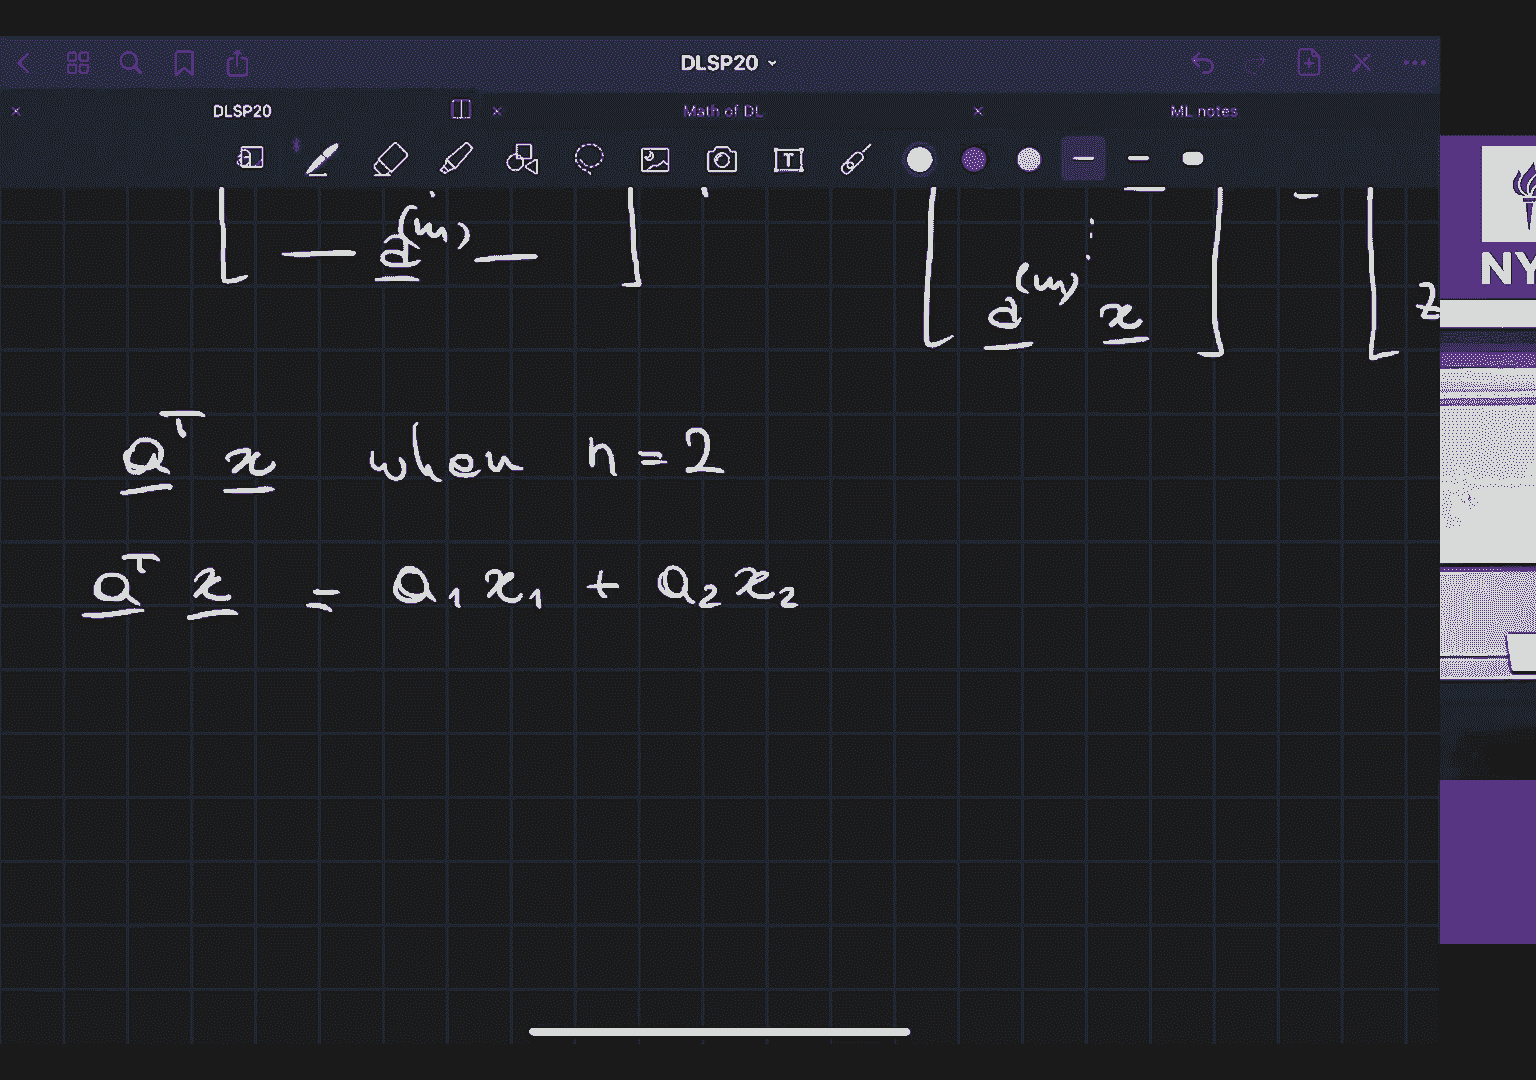 DLSP20
DLSP20 Math of DL ML notes
— a⁽ᵐ⁾ —
a⁽ᵐ⁾ x
z
NY
aᵀ x when n = 2
aᵀ x = a₁ x₁ + a₂ x₂